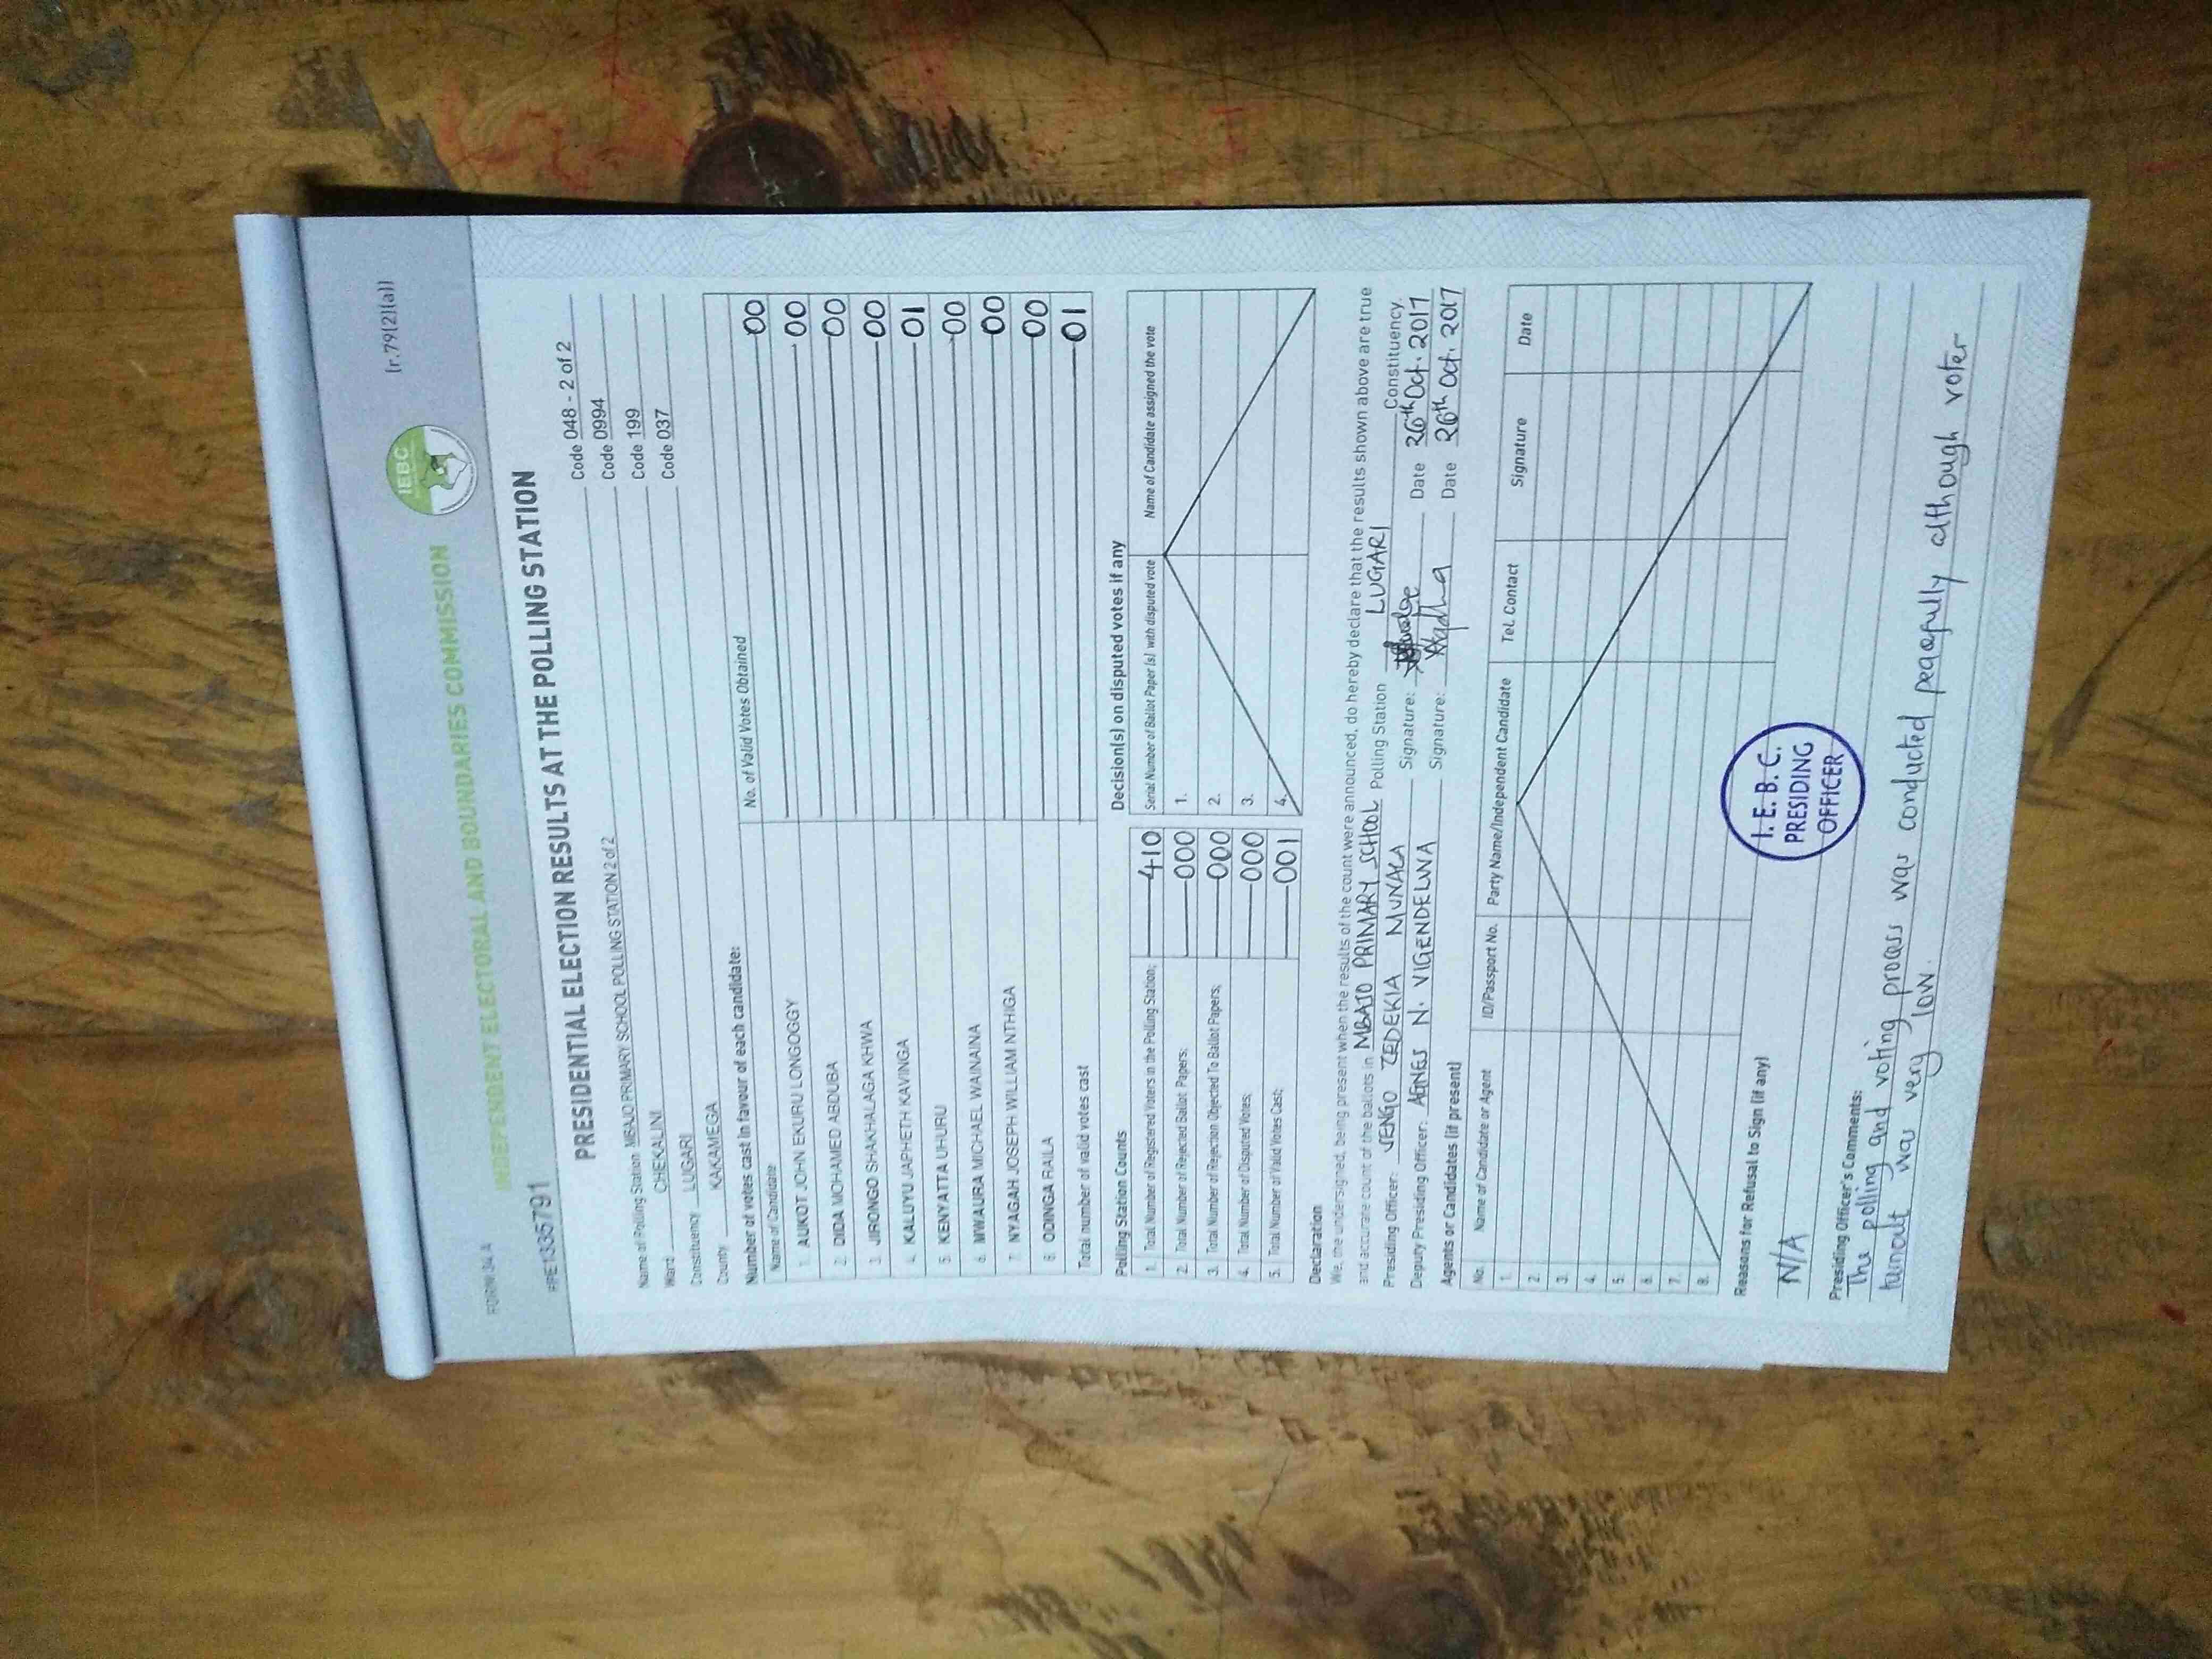 FORM 34 A
(r.79(2)(a))
IEBC
INDEPENDENT ELECTORAL AND BOUNDARIES COMMISSION
#PE1335791
PRESIDENTIAL ELECTION RESULTS AT THE POLLING STATION
Name of Polling Station MBAJO PRIMARY SCHOOL POLLING STATION 2 of 2 Code 048 - 2 of 2
Ward CHEKALINI Code 0994
Constituency LUGARI Code 199
County KAKAMEGA Code 037
Number of votes cast in favour of each candidate:
Name of Candidate No. of Valid Votes Obtained
1. AUKOT JOHN EKURU LONGOGGY 00
2. DIDA MOHAMED ABDUBA 00
3. JIRONGO SHAKHALAGA KHWA 00
4. KALUYU JAPHETH KAVINGA 00
5. KENYATTA UHURU 01
6. MWAURA MICHAEL WAINAINA 00
7. NYAGAH JOSEPH WILLIAM NTHIGA 00
8. ODINGA RAILA 00
Total number of valid votes cast 01
Polling Station Counts Decision(s) on disputed votes if any
1. Total Number of Registered Voters in the Polling Station; 410 Serial Number of Ballot Paper (s) with disputed vote Name of Candidate assigned the vote
2. Total Number of Rejected Ballot Papers; 000 1.
3. Total Number of Rejection Objected To Ballot Papers; 000 2.
4. Total Number of Disputed Votes; 000 3.
5. Total Number of Valid Votes Cast; 001 4.
Declaration
We, the undersigned, being present when the results of the count were announced, do hereby declare that the results shown above are true
and accurate count of the ballots in MBAJO PRIMARY SCHOOL Polling Station LUGARI Constituency.
Presiding Officer: JENGO ZEDEKIA MUNALA Signature: Date 26th Oct. 2017
Deputy Presiding Officer: AGNES N. VIGENDELWA Signature: Date 26th Oct. 2017
Agents or Candidates (if present)
No. Name of Candidate or Agent ID/Passport No. Party Name/Independent Candidate Tel. Contact Signature Date
1.
2.
3.
4.
5.
6.
7.
8.
Reasons for Refusal to Sign (if any)
N/A
I.E.B.C.
PRESIDING
OFFICER
Presiding Officer's Comments:
The polling and voting process was conducted peacefully although voter
turnout was very low.